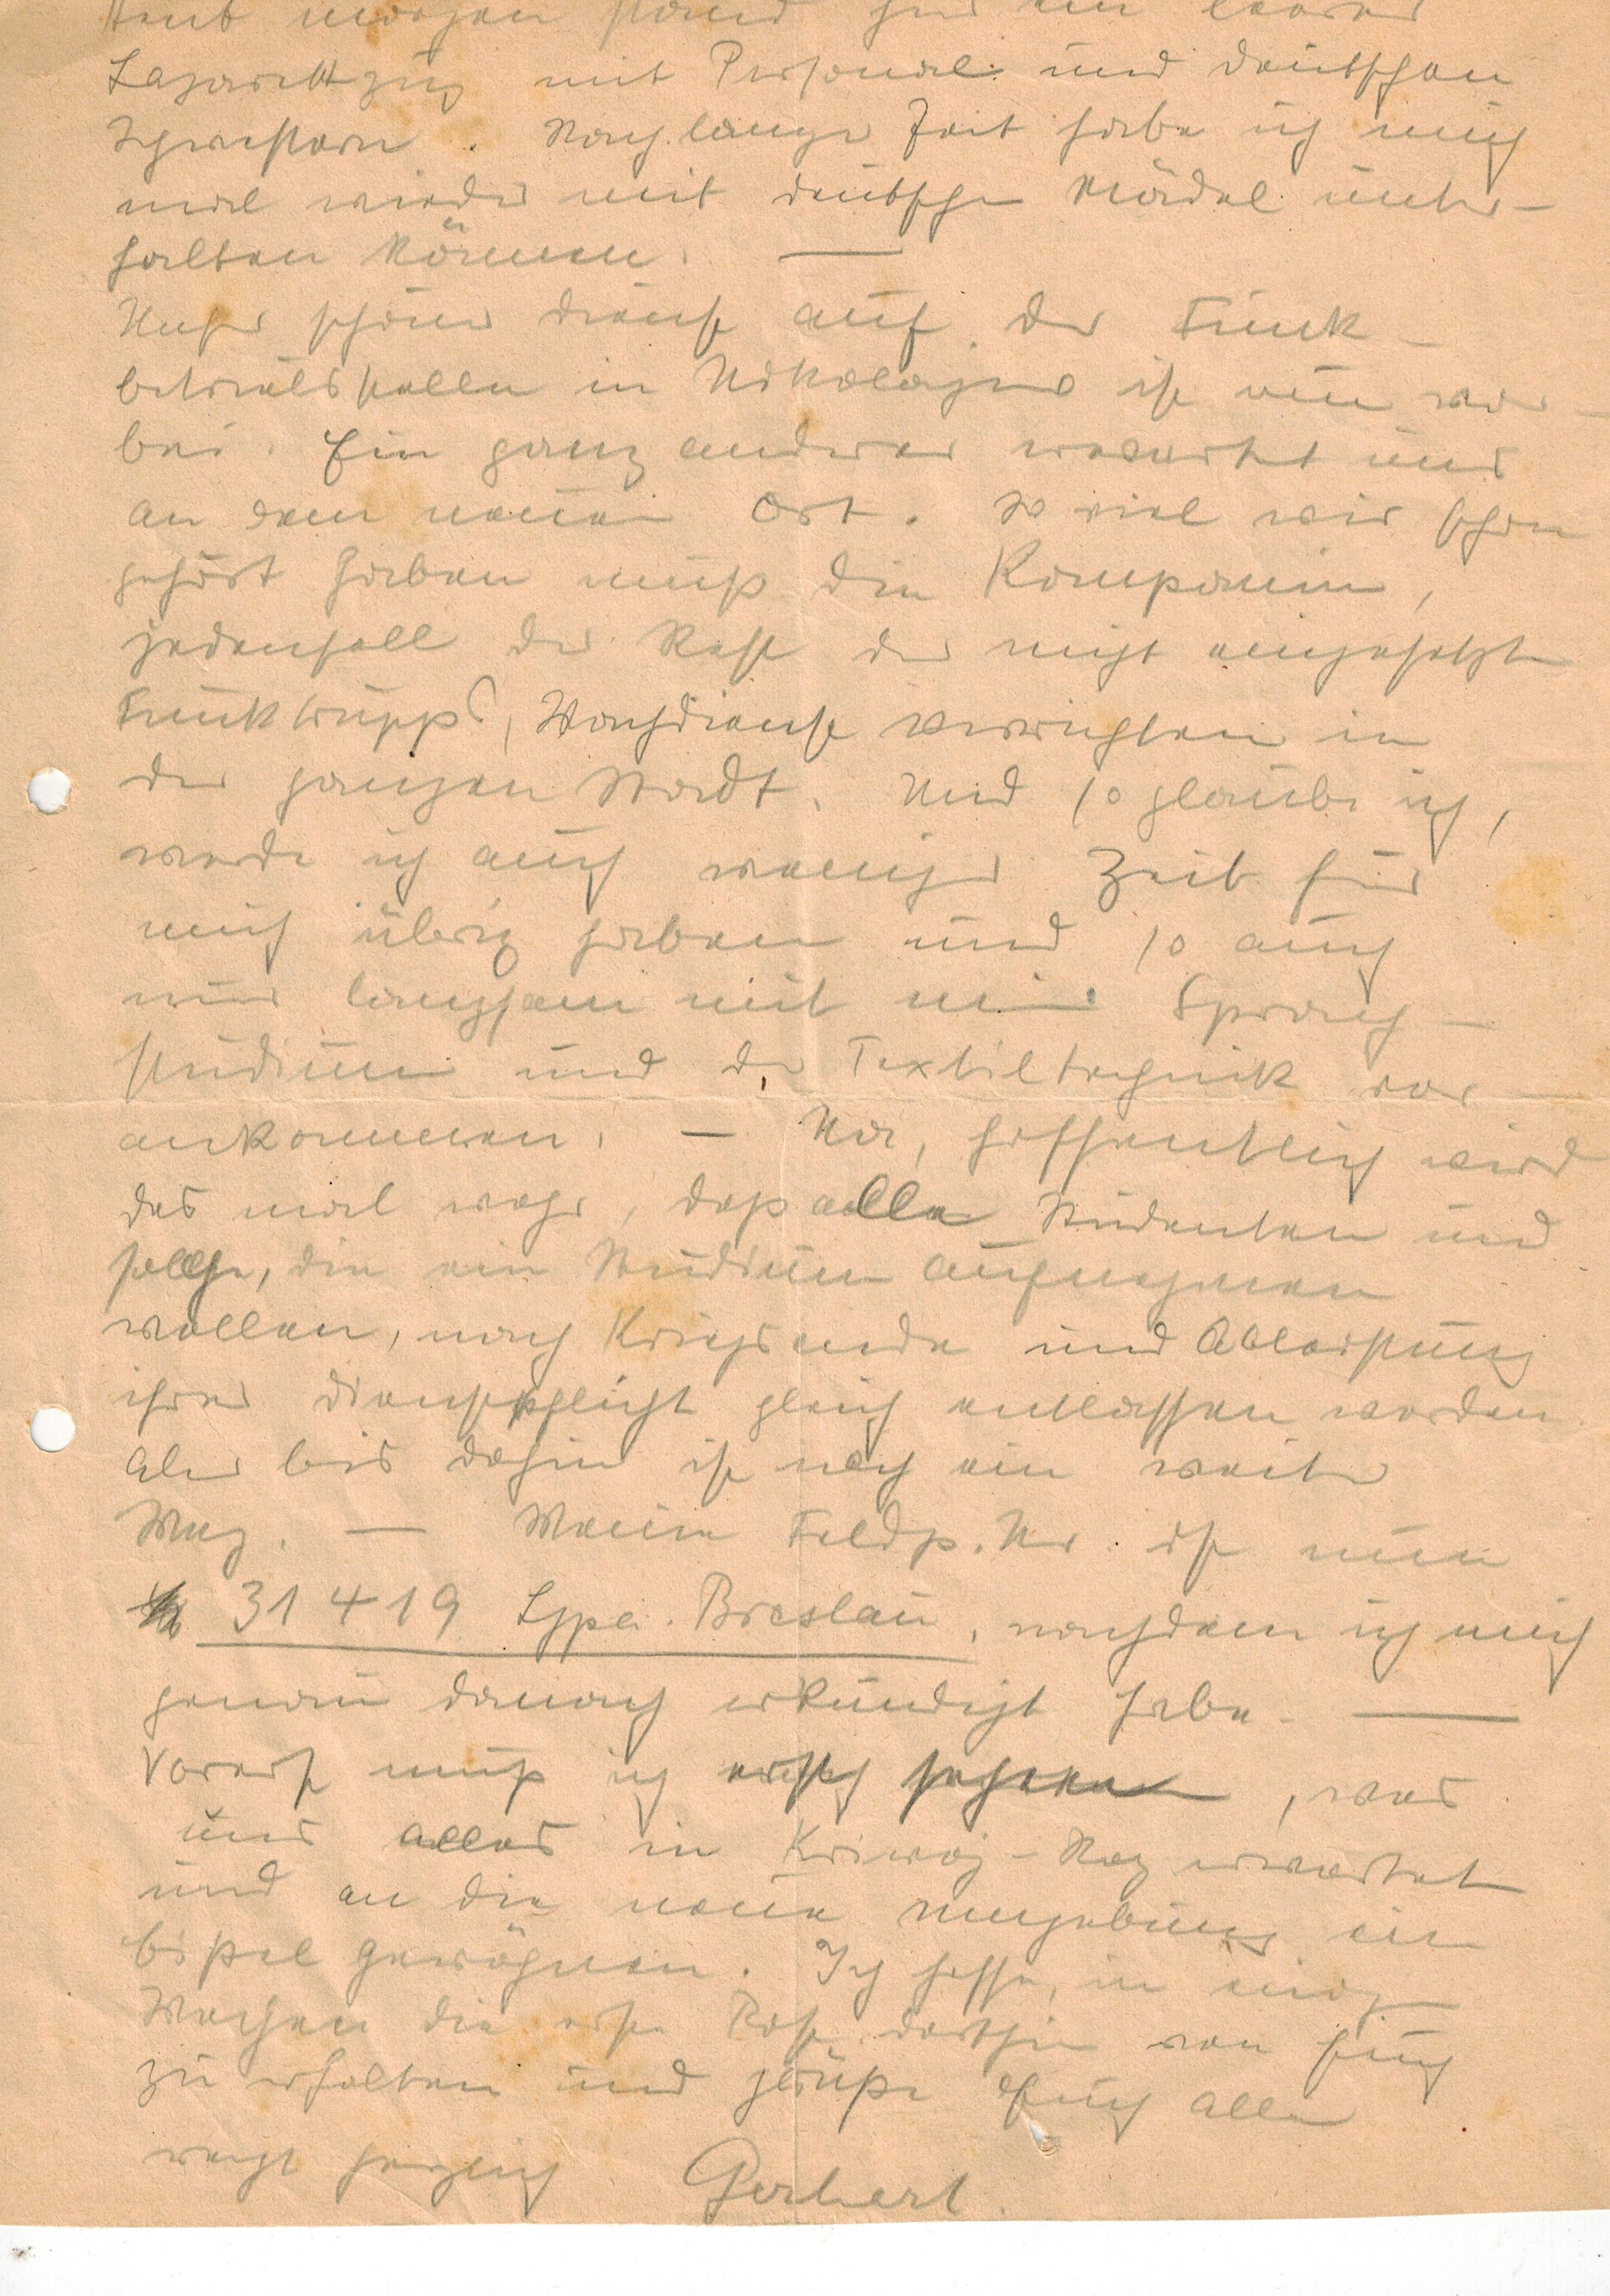 Heut morgen stand hier ein leerer
Lazarettzug mit Personal und deutschen
Schwestern. Nach langer Zeit habe ich mich
mal wieder mit deutschen Mädel unter-
halten können. —
Unser schöner Dienst auf der Funk-
betriebsstelle in Nikolajew ist nun vor-
bei. Ein ganz anderer erwartet uns
an dem neuen Ort. So viel wir schon
gehört haben muß die Kompanie,
jedenfall der Rest der nicht eingesetzten
Funktrupps, Wachdienst verrichten in
der ganzen Stadt. Und so glaube ich,
werde ich auch weniger Zeit für
mich übrig haben und so auch
nur langsam mit mein Sprach-
studium und der Textiltechnik vor-
ankommen. — Na, hoffentlich wird
das mal wahr, daß alle Studenten und
solche, die ein Studium aufnehmen
wollen, nach Kriegsende und Ableistung
ihrer Dienstpflicht gleich entlassen werden.
Aber bis dahin ist noch ein weiter
Weg. — Meine Feldp. Nr. ist nun
31419 Lgpa. Breslau, nachdem ich mich
genau danach erkundigt habe. —
Vorerst muß ich erst sehen, was
uns alles in Kriwoj-Rog erwartet
und an die neue Umgebung ein
bißel gewöhnen. Ich hoffe, in einig
Wochen die erste Post dorthin von Euch
zu erhalten und grüße Euch alle
recht herzlich Gerhert.